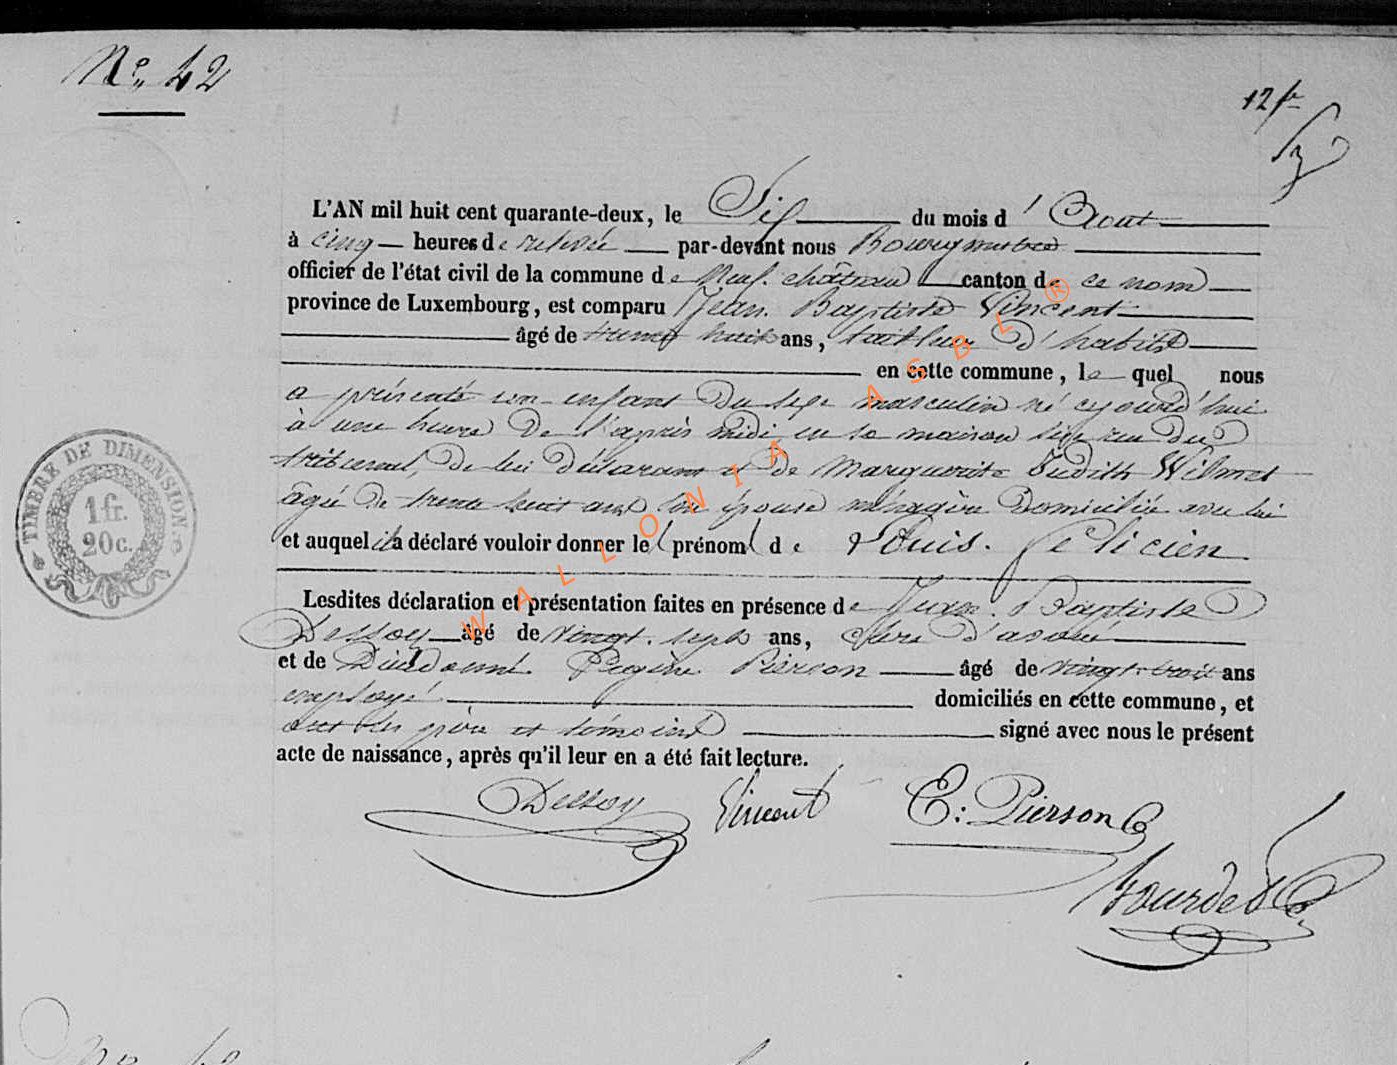 N° 42
12 fr
L'AN mil huit cent quarante-deux, le Six du mois d' Aout
à cinq heures de relevée par-devant nous Bourgmestre
officier de l'état civil de la commune de Neufchâteau canton de ce nom
province de Luxembourg, est comparu Jean Baptiste Vincent
âgé de trente huit ans, tailleur d'habits
en cette commune, le quel nous
a présenté un enfant du sexe masculin né cejourd'hui
à une heure de l'après midi, en sa maison sise rue du
tribunal, de lui déclarant et de Marguerite Judith Wilmet
âgée de trente huit ans son épouse ménagère domiciliée avec lui
et auquel il a déclaré vouloir donner le prénom de Louis. Felicien
Lesdites déclaration et présentation faites en présence de Jean. Baptiste
Dessoy âgé de vingt. sept ans, clerc d'avoué
et de Dieudonné Eugène Pierson âgé de vingt-trois ans
employé domiciliés en cette commune, et
ont les père et témoins signé avec nous le présent
acte de naissance, après qu'il leur en a été fait lecture.
Dessoy Vincent E: Pierson
TIMBRE DE DIMENSION
1 fr.
20 c.
WALLONIA ASBL ®